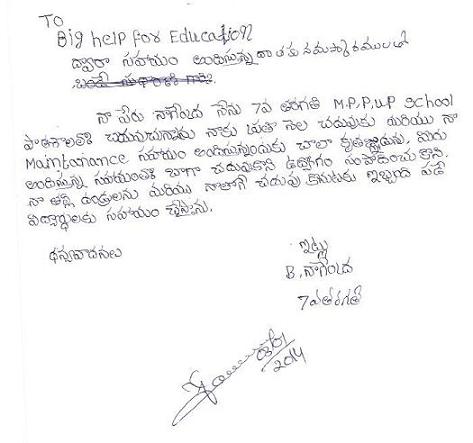 To
Big help for Education
ద్వారా సహాయం అందిస్తున్న దాతకు నమస్కారములతో
నా పేరు నాగేంద్ర నేను 7వ తరగతి M.P.P.UP School
పాఠశాలలో చదువుచున్నాను నాకు ప్రతి నెల చదువుకు మరియు నా
Maintanance సహాయం అందిస్తున్నందుకు చాలా కృతజ్ఞుడును. మీరు
అందిస్తున్న సహాయంతో బాగా చదువుకొని ఉద్యోగం సంపాదించుకొని.
నా తల్లి దండ్రులను మరియు నాలాగే చదువు కొనుటకు ఇబ్బంది పడే
విద్యార్థులకు సహాయం చేస్తాను.
ధన్యవాదములు
ఇట్లు
B. నాగేంద్ర
7వ తరగతి
2014